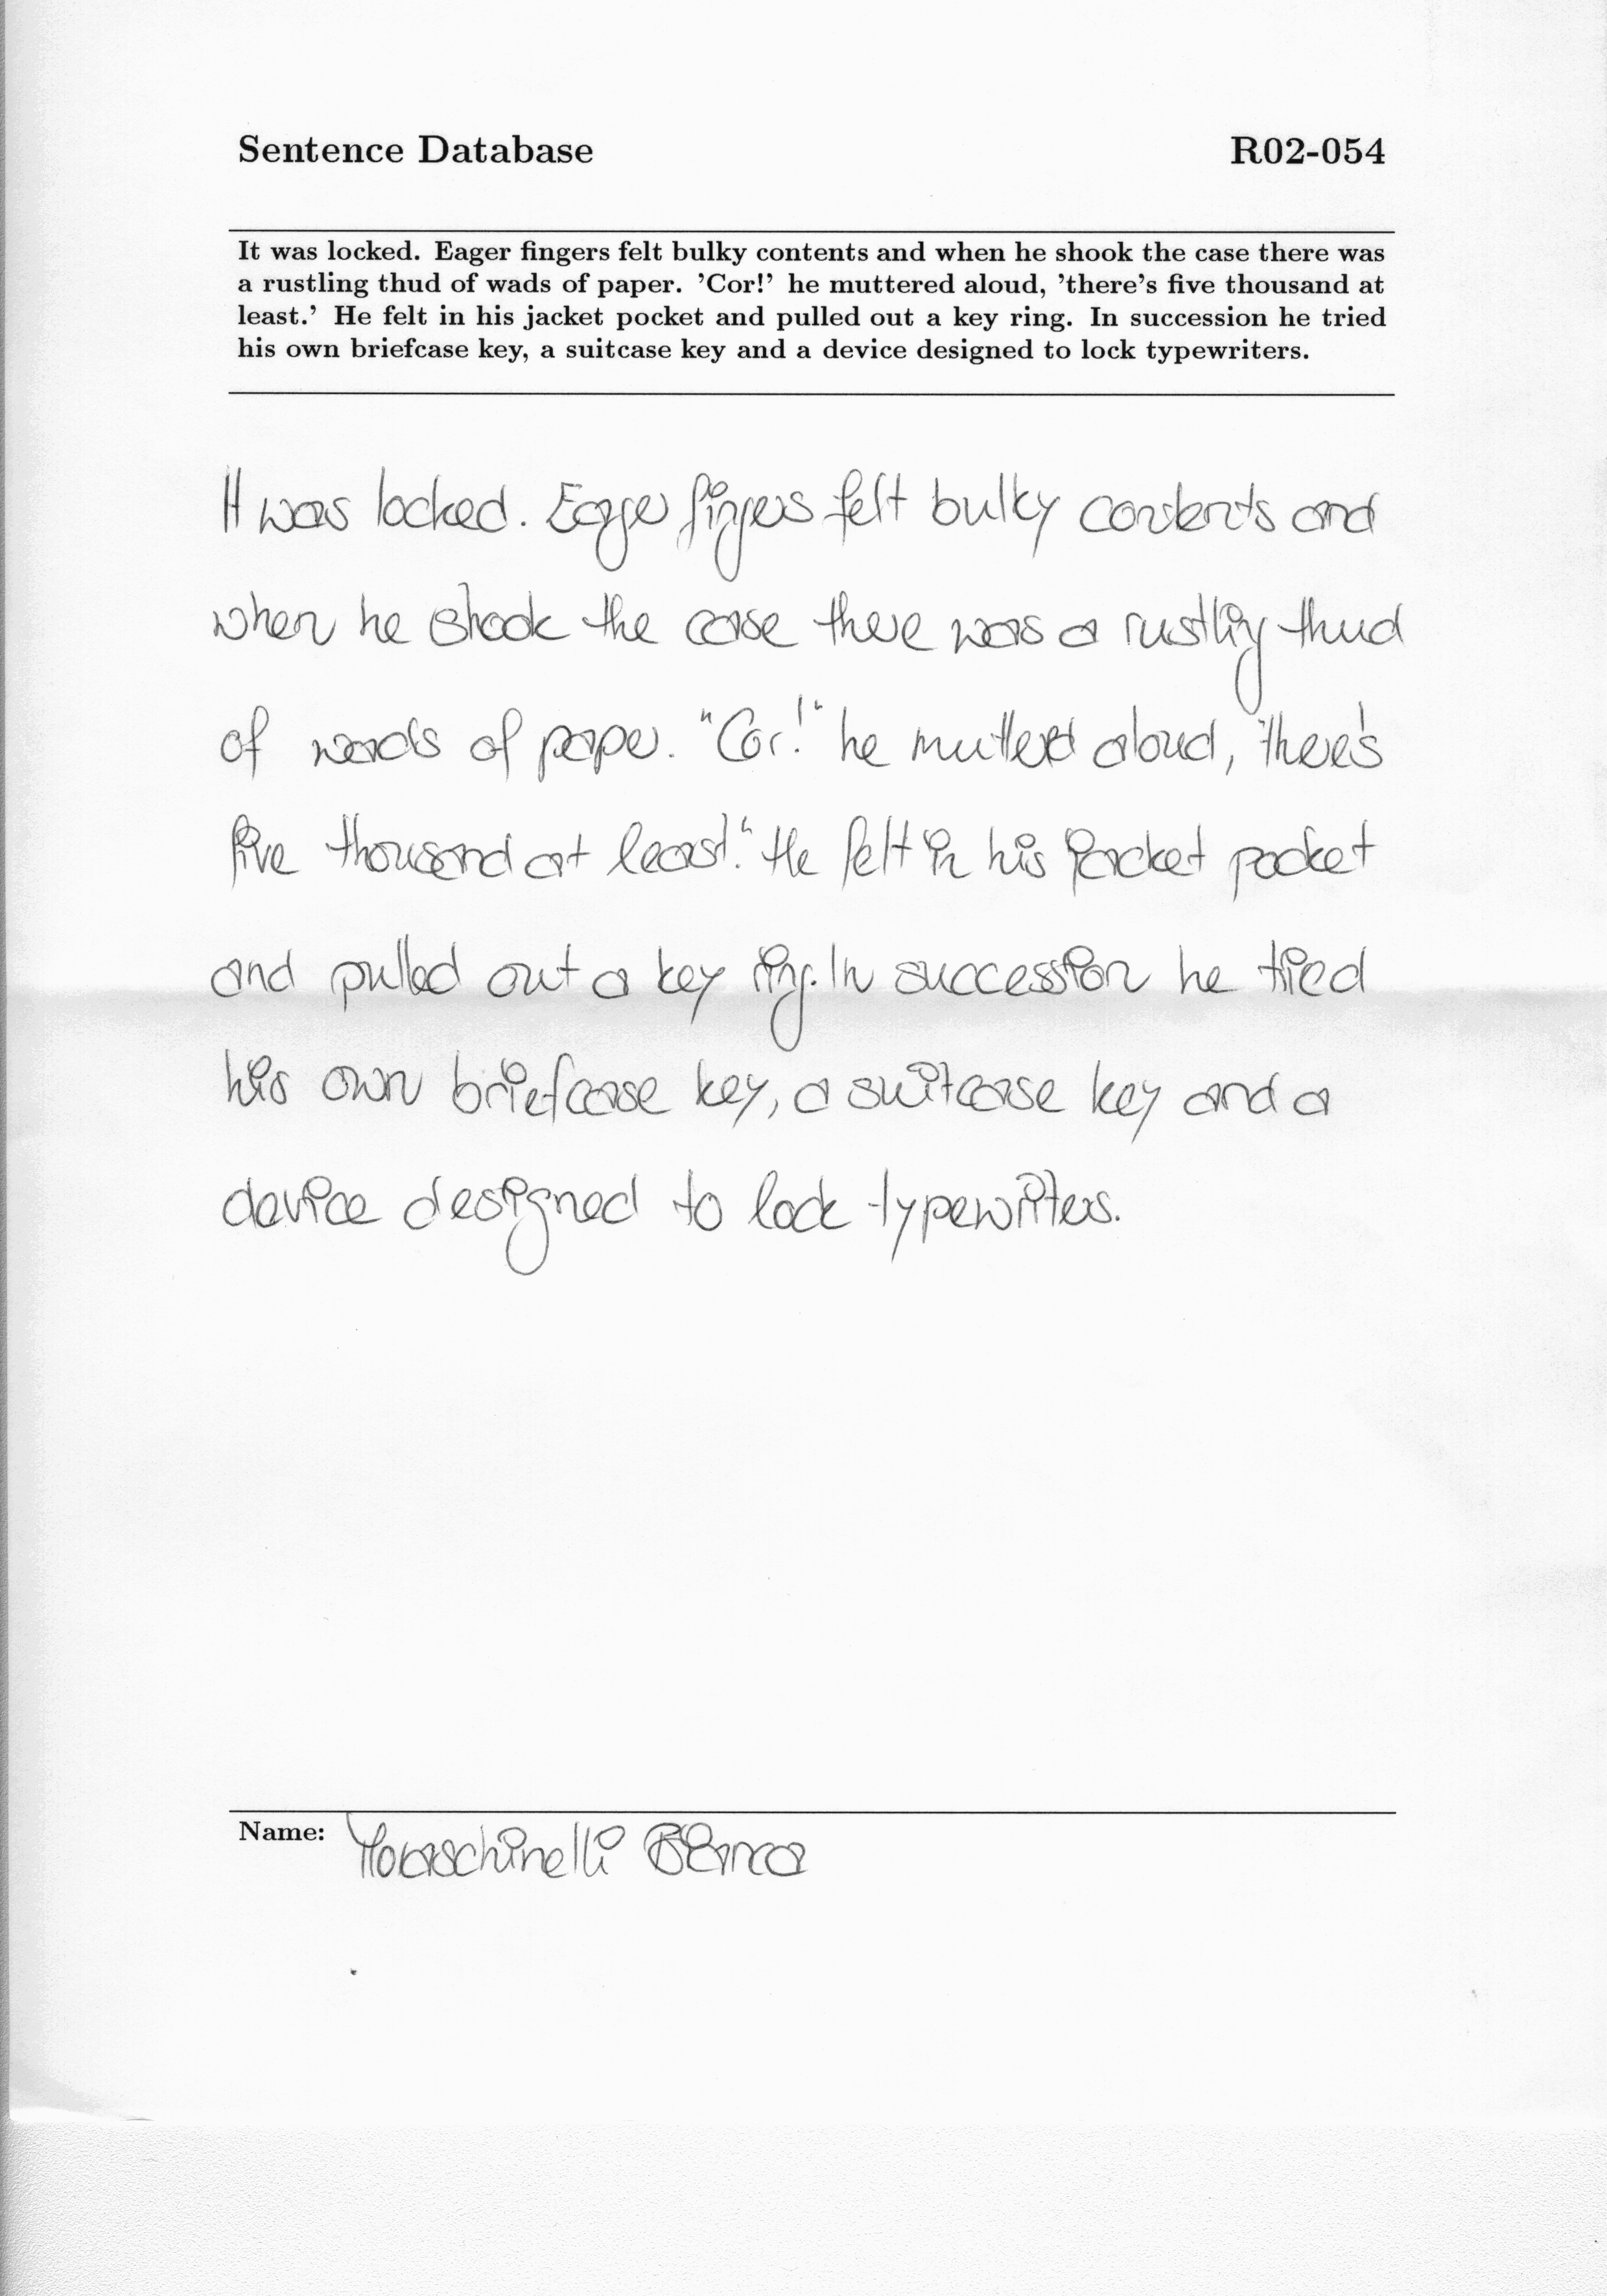 Sentence Database R02-054
It was locked. Eager fingers felt bulky contents and when he shook the case there was
a rustling thud of wads of paper. 'Cor!' he muttered aloud, 'there's five thousand at
least.' He felt in his jacket pocket and pulled out a key ring. In succession he tried
his own briefcase key, a suitcase key and a device designed to lock typewriters.
It was locked. Eager fingers felt bulky contents and
when he shook the case there was a rustling thud
of wads of paper. "Cor!" he muttered aloud, "there's
five thousand at least." He felt in his jacket pocket
and pulled out a key ring. In succession he tried
his own briefcase key, a suitcase key and a
device designed to lock typewriters.
Name: Bianca